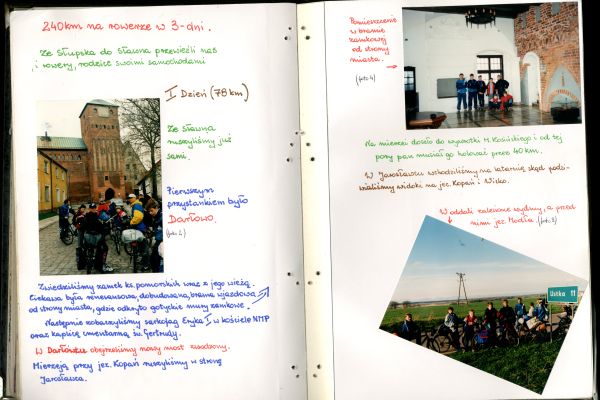 240km na rowerze w 3-dni.
Ze Słupska do Sławna przewieźli nas
i rowery, rodzice swoimi samochodami
I Dzień (78km)
Ze Sławna
ruszyliśmy już
sami.
Pierwszym
przystankiem było
Darłowo.
Zwiedziliśmy zamek ks. pomorskich wraz z jego wieżą.
Ciekawa była renesansowa, dobudowana, brama wjazdowa
od strony miasta, gdzie odkryto gotyckie mury zamkowe.
Następnie zobaczyliśmy sarkofag Eryka I w kościele NMP
oraz kaplicę cmentarną św. Gertrudy.
W Darłówku obejrzeliśmy nowy most zwodzony.
Mierzeją przy jez. Kopań ruszyliśmy w stronę
Jarosławca.
Pomieszczenie
w bramie
zamkowej
od strony
miasta.
(foto 4)
Na mierzei doszło do wywrotki M. Kosińskiego i od tej
pory pan musiał go holować przez 40km.
W Jarosławcu wchodziliśmy na latarnię skąd podzi-
wialiśmy widoki na jez. Kopań i Wicko.
W oddali zalesione wydmy, a przed
nimi jez. Modła. (foto 3)
Ustka 11